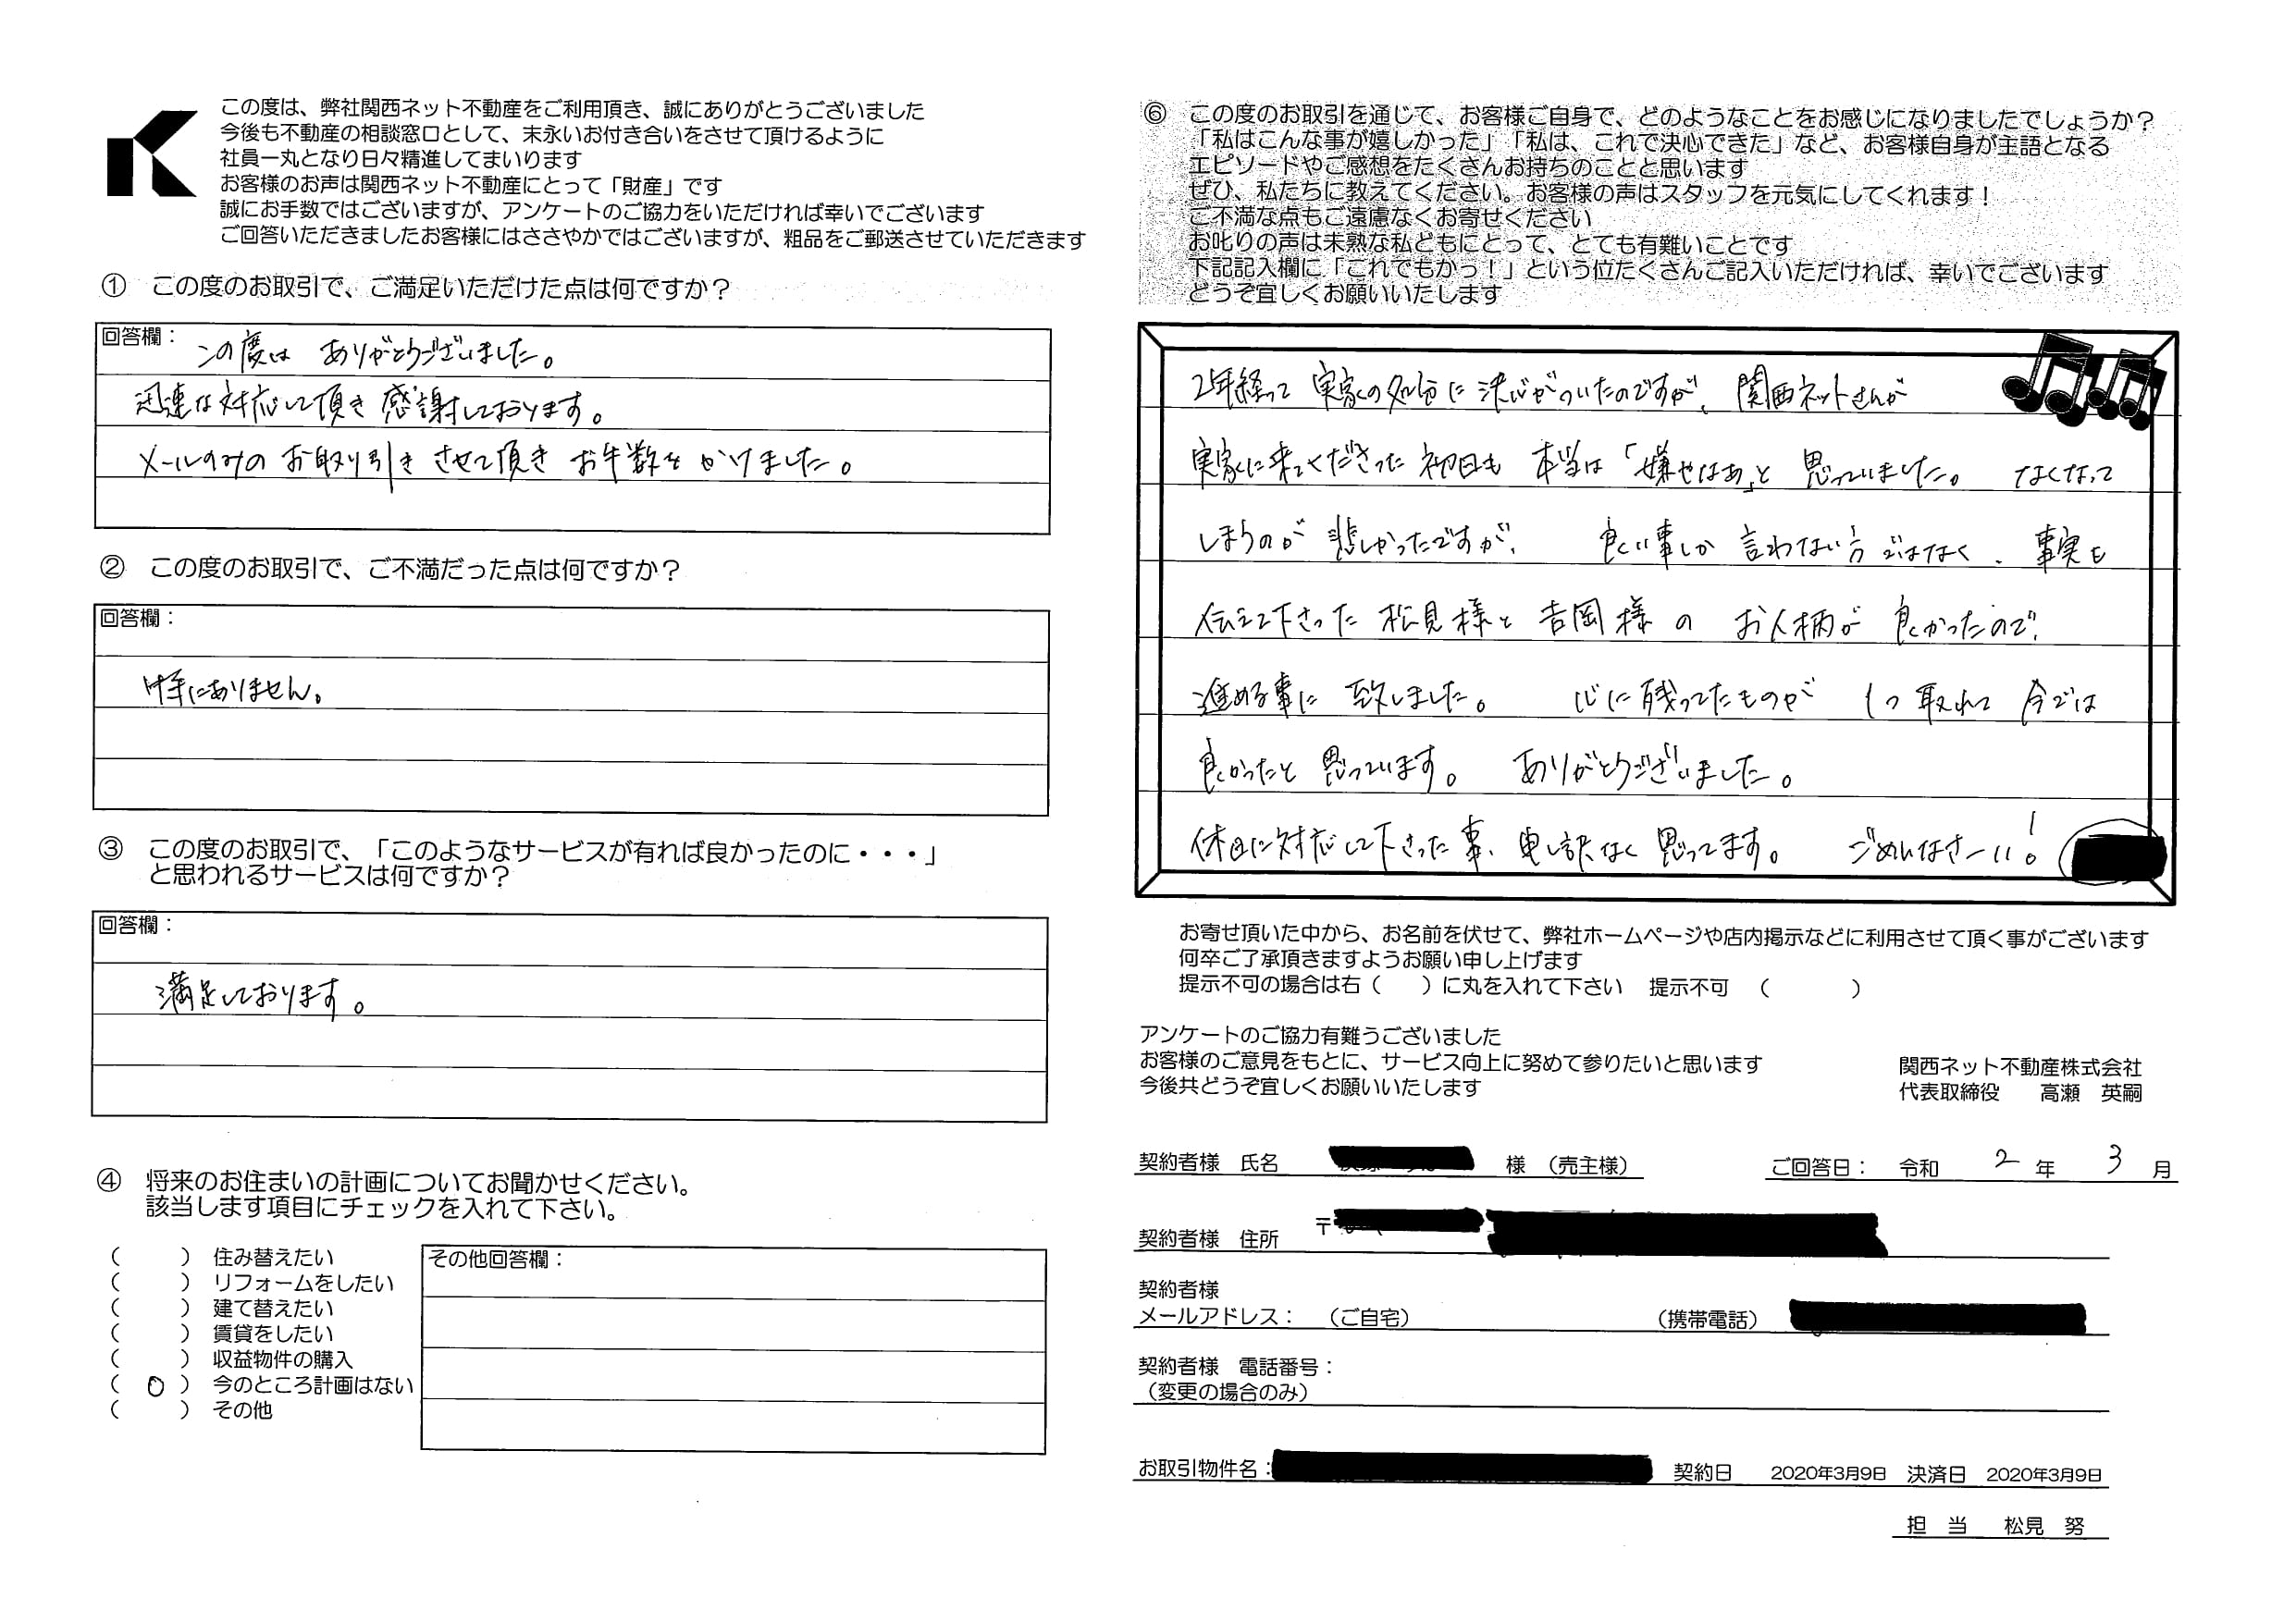 この度は、弊社関西ネット不動産をご利用頂き、誠にありがとうございました
今後も不動産の相談窓口として、末永いお付き合いをさせて頂けるように
社員一丸となり日々精進してまいります
お客様のお声は関西ネット不動産にとって「財産」です
誠にお手数ではございますが、アンケートのご協力をいただければ幸いでございます
ご回答いただきましたお客様にはささやかではございますが、粗品をご郵送させていただきます
① この度のお取引で、ご満足いただけた点は何ですか？
回答欄： この度は ありがとうございました。
迅速な対応して頂き 感謝しております。
メールのみの お取り引き させて頂き お手数を かけました。
② この度のお取引で、ご不満だった点は何ですか？
回答欄：
特にありません。
③ この度のお取引で、「このようなサービスが有れば良かったのに・・・」
と思われるサービスは何ですか？
回答欄：
満足しております。
④ 将来のお住まいの計画についてお聞かせください。
該当します項目にチェックを入れて下さい。
（　　）住み替えたい
（　　）リフォームをしたい
（　　）建て替えたい
（　　）賃貸をしたい
（　　）収益物件の購入
（ ○ ）今のところ計画はない
（　　）その他
その他回答欄：
⑥ この度のお取引を通じて、お客様ご自身で、どのようなことをお感じになりましたでしょうか？
「私はこんな事が嬉しかった」「私は、これで決心できた」など、お客様自身が主語となる
エピソードやご感想をたくさんお持ちのことと思います
ぜひ、私たちに教えてください。お客様の声はスタッフを元気にしてくれます！
ご不満な点もご遠慮なくお寄せください
お叱りの声は未熟な私どもにとって、とても有難いことです
下記記入欄に「これでもかっ！」という位たくさんご記入いただければ、幸いでございます
どうぞ宜しくお願いいたします
2年経って 実家の処分に 決心がついたのですが、 関西ネットさんが
実家に来てくださった 初日も 本当は「嫌やなあ」と 思っていました。 なくなって
しまうのが 悲しかったですが、 良い事しか 言わない方 ではなく、事実も
伝えて下さった 松見様と 吉岡様の お人柄が 良かったので、
進める事に 致しました。 心に残ってたものが 1つ 取れて 今では
良かったと 思っています。 ありがとうございました。
休日に対応して下さった事、申し訳なく 思ってます。 ごめんなさーい！。
お寄せ頂いた中から、お名前を伏せて、弊社ホームページや店内掲示などに利用させて頂く事がございます
何卒ご了承頂きますようお願い申し上げます
提示不可の場合は右（　　）に丸を入れて下さい　提示不可　（　　　　）
アンケートのご協力有難うございました
お客様のご意見をもとに、サービス向上に努めて参りたいと思います
今後共どうぞ宜しくお願いいたします
関西ネット不動産株式会社
代表取締役　高瀬　英嗣
契約者様　氏名　様　（売主様）　ご回答日：　令和　2　年　3　月
契約者様　住所　〒
契約者様
メールアドレス：　（ご自宅）　（携帯電話）
契約者様　電話番号：
（変更の場合のみ）
お取引物件名：　契約日　2020年3月9日　決済日　2020年3月9日
担　当　松見　努